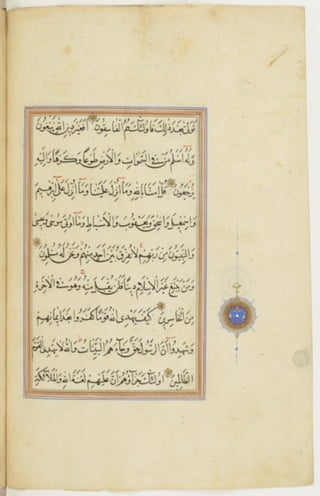 تولى بعد ذلك فاولئك هم الفاسقون افغير دين الله يبغون
وله اسلم من في السموات والارض طوعا وكرها واليه
يرجعون قل امنا بالله وما انزل علينا وما انزل على ابرهيم
واسمعيل واسحق ويعقوب والاسباط وما اوتي موسى وعيسى
والنبيون من ربهم لا نفرق بين احد منهم ونحن له مسلمون
ومن يبتغ غير الاسلام دينا فلن يقبل منه وهو في الاخرة
من الخاسرين كيف يهدي الله قوما كفروا بعد ايمانهم
وشهدوا ان الرسول حق وجاءهم البينات والله لا يهدي القوم
الظالمين اولئك جزاؤهم ان عليهم لعنة الله والملائكة